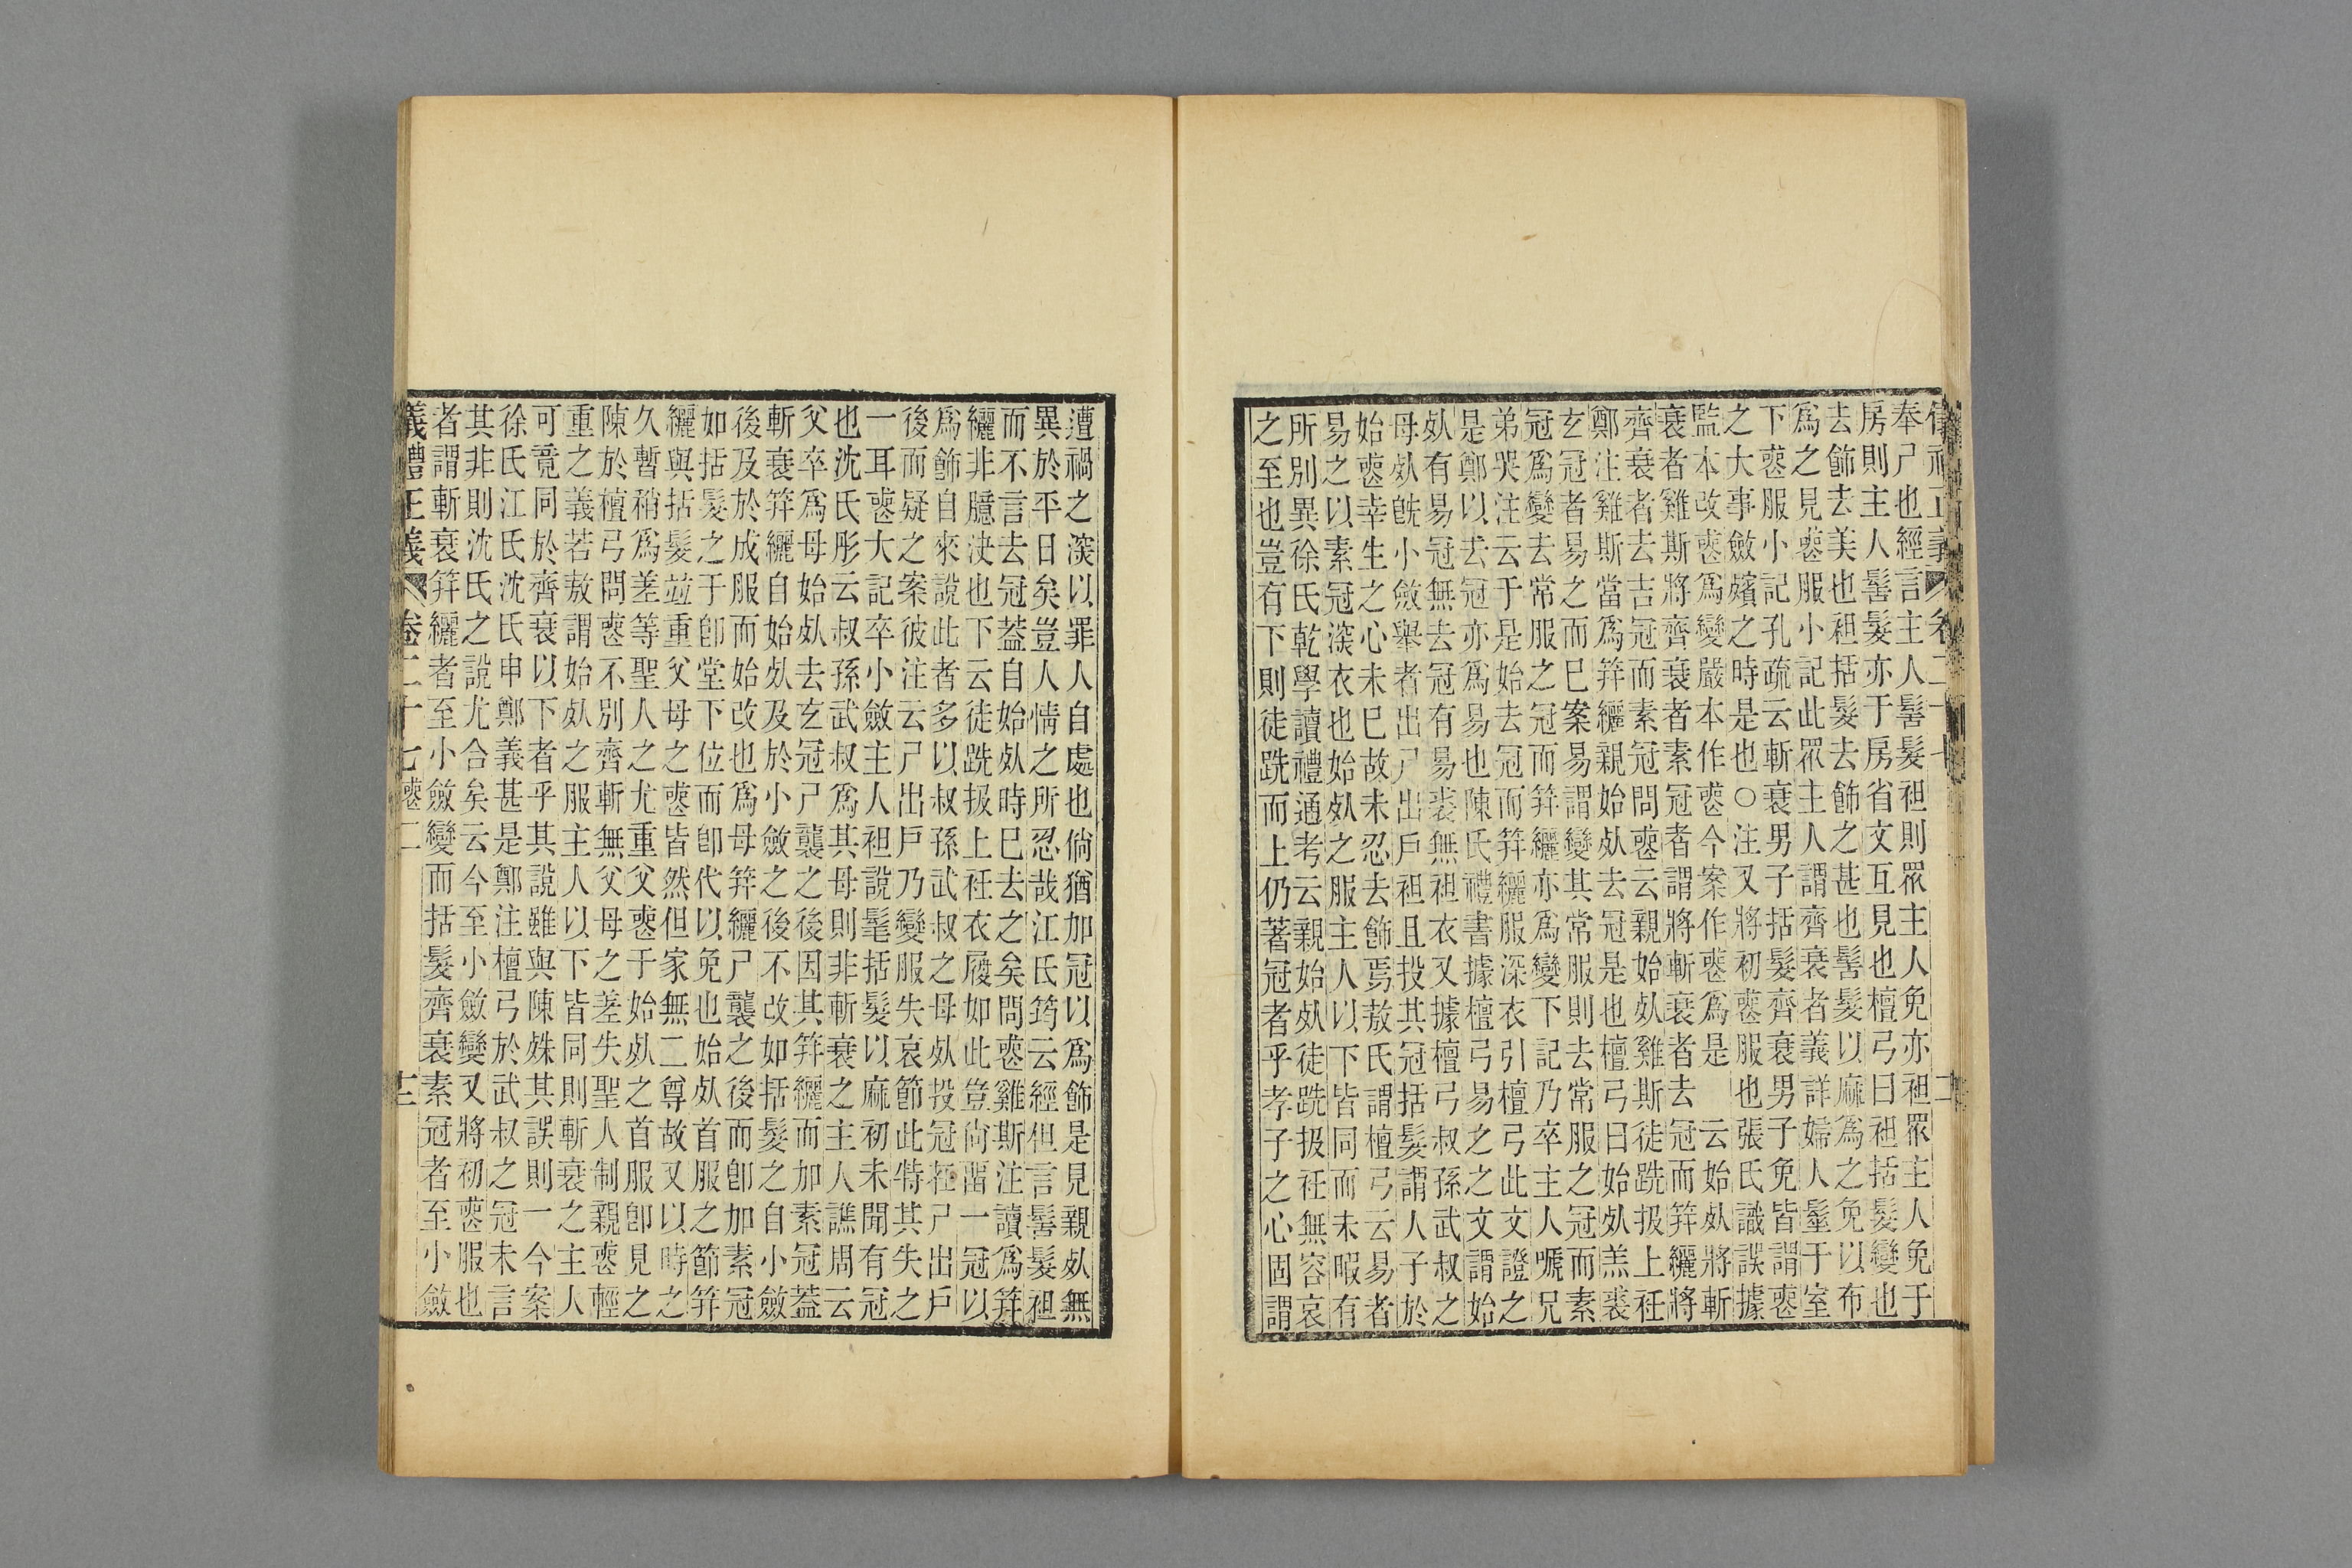 奉尸也經言主人髻髮袒則眾主人免亦袒眾主人免于
房則主人髻髮亦于房省文互見也檀弓曰袒括髮變也
去飾去美也袒括髮去飾之甚也髻髮以麻爲之免以布
爲之見喪服小記此眾主人謂齊衰者義詳婦人髽于室
下喪服小記孔疏云斬衰男子括髮齊衰男子免皆謂喪
之大事斂殯之時是也○注又將初喪服也張氏識誤據
監本改喪爲變嚴本作喪今案作喪爲是　云始死將斬
衰者雞斯將齊衰者素冠者謂將斬衰者去冠而笄纚將
齊衰者去吉冠而素冠問喪云親始死雞斯徒跣扱上衽
鄭注雞斯當爲笄纚親始死去冠是也檀弓曰始死羔裘
玄冠者易之而已案易謂變其常服則去常服之冠而素
冠爲變去常服之冠而笄纚亦爲變下記乃卒主人嗁兄
弟哭注云于是始去冠而笄纚服深衣引檀弓此文證之
是鄭以去冠亦爲易也陳氏禮書據檀弓易之之文謂始
死有易冠無去冠有易裘無袒衣又據檀弓叔孫武叔之
母死旣小斂舉者出尸出戶袒且投其冠括髮謂人子於
始喪幸生之心未已故未忍去飾焉敖氏謂檀弓云易者
易之以素冠深衣也始死之服主人以下皆同而未暇有
所別異徐氏乾學讀禮通考云親始死徒跣扱衽無容哀
之至也豈有下則徒跣而上仍著冠者乎孝子之心固謂
遭禍之深以罪人自處也倘猶加冠以爲飾是見親死無
異於平日矣豈人情之所忍哉江氏筠云經但言髻髮袒
而不言去冠葢自始死時已去之矣問喪雞斯注讀爲笄
纚非臆決也下云徒跣扱上衽衣履如此豈尙畱一冠以
爲飾自來說此者多以叔孫武叔之母死投冠在尸出戶
後而疑之案彼注云尸出戶乃變服失哀節此特其失之
一耳喪大記卒小斂主人袒說髦括髮以麻初未聞有冠
也沈氏彤云叔孫武叔爲其母則非斬衰之主人譙周云
父卒爲母始死去玄冠尸襲之後因其笄纚而加素冠葢
斬衰笄纚自始死及於小斂之後不改如括髮之自小斂
後及於成服而始改也爲母笄纚尸襲之後而卽加素冠
如括髮之于卽堂下位而卽代以免也始死首服之節笄
纚與括髮竝重父母之喪皆然但家無二尊故又以時之
久暫稍爲差等聖人之尤重父喪于始死之首服卽見之
陳於檀弓問喪不別齊斬無父母之差失聖人制親喪輕
重之義若敖謂始死之服主人以下皆同則斬衰之主人
可竟同於齊衰以下者乎其說雖與陳殊其誤則一今案
徐氏江氏沈氏申鄭義甚是鄭注檀弓於武叔之冠未言
其非則沈氏之說尤合矣云今至小斂變又將初喪服也
者謂斬衰笄纚者至小斂變而括髮齊衰素冠者至小斂
儀禮正義 卷二十七喪二